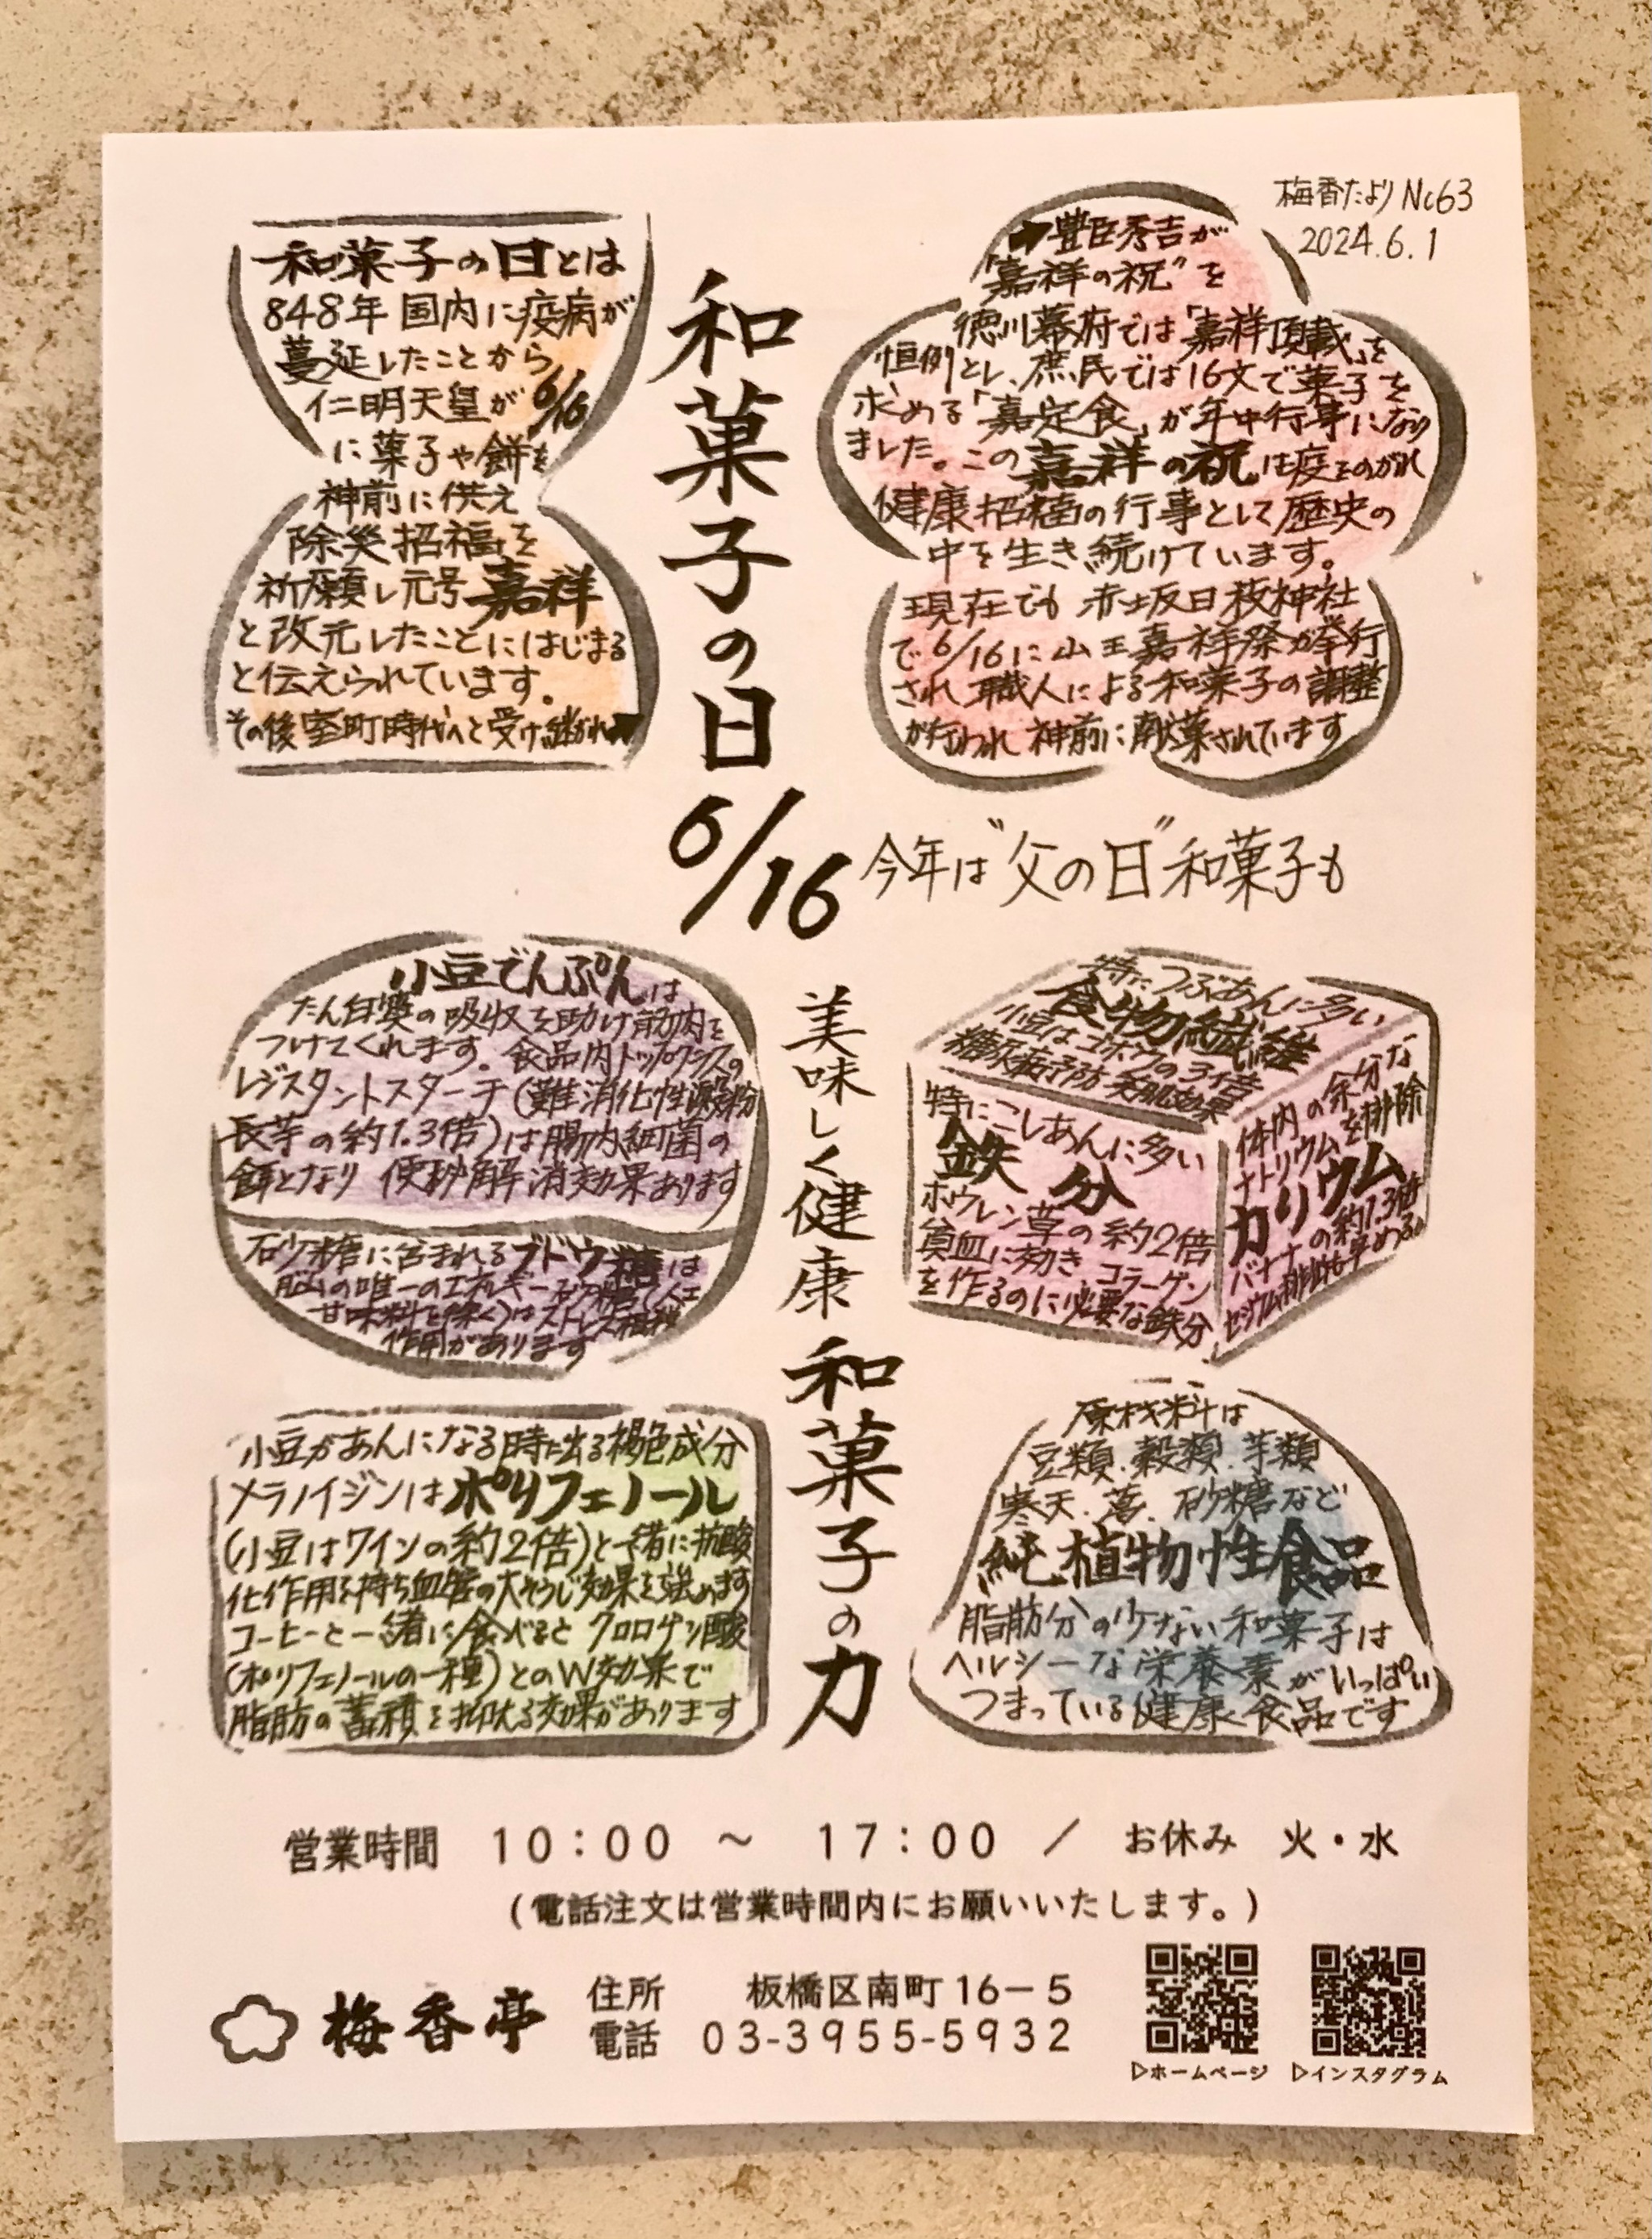 梅香たより No63
2024.6.1
和菓子の日
6/16
今年は"父の日"和菓子も
和菓子の日とは
848年 国内に疫病が
蔓延したことから
仁明天皇が6/16
に菓子や餅を
神前に供え
除災招福を
祈願し元号嘉祥
と改元したことにはじまる
と伝えられています。
その後室町時代へと受け継がれ➡
➡豊臣秀吉が
"嘉祥の祝"を
徳川幕府では「嘉祥頂戴」を
恒例とし、庶民では16文で菓子を
求める「嘉定食」が年中行事になり
ました。この嘉祥の祝は疫をのがれ
健康招福の行事として歴史の
中を生き続けています。
現在でも 赤坂日枝神社
で6/16に山王嘉祥祭が挙行
され 職人による和菓子の調整
が行われ 神前に献菓されています
美味しく健康 和菓子の力
小豆でんぷんは
たん白質の吸収を助け筋肉を
つけてくれます。食品内トップクラスの
レジスタントスターチ(難消化性澱粉
長芋の約1.3倍)は腸内細菌の
餌となり 便秘解消効果あります
砂糖に含まれるブドウ糖は
脳の唯一のエネルギー 砂糖(人工
甘味料を除く)はストレス緩和
作用があります
特につぶあんに多い
食物繊維
小豆はゴボウの3倍
糖尿病予防 美肌効果
特にこしあんに多い
鉄分
ホウレン草の約2倍
貧血に効き コラーゲン
を作るのに必要な鉄分
体内の余分な
ナトリウムを排除
カリウム
バナナの約1.3倍
セシウム排出も早める。
小豆があんになる時に出る褐色成分
メラノイジンはポリフェノール
(小豆はワインの約2倍)と一緒に抗酸
化作用を持ち血管の大そうじ効果を強めます
コーヒーと一緒に食べると クロロゲン酸
(ポリフェノールの一種)とのW効果で
脂肪の蓄積を抑える効果があります
原材料は
豆類.穀類.芋類
寒天.葛.砂糖など
純植物性食品
脂肪分の少ない和菓子は
ヘルシーな栄養素がいっぱい
つまっている健康食品です
営業時間 10:00 ～ 17:00 / お休み 火・水
(電話注文は営業時間内にお願いいたします。)
梅香亭
住所 板橋区南町16－5
電話 03-3955-5932
▷ホームページ
▷インスタグラム